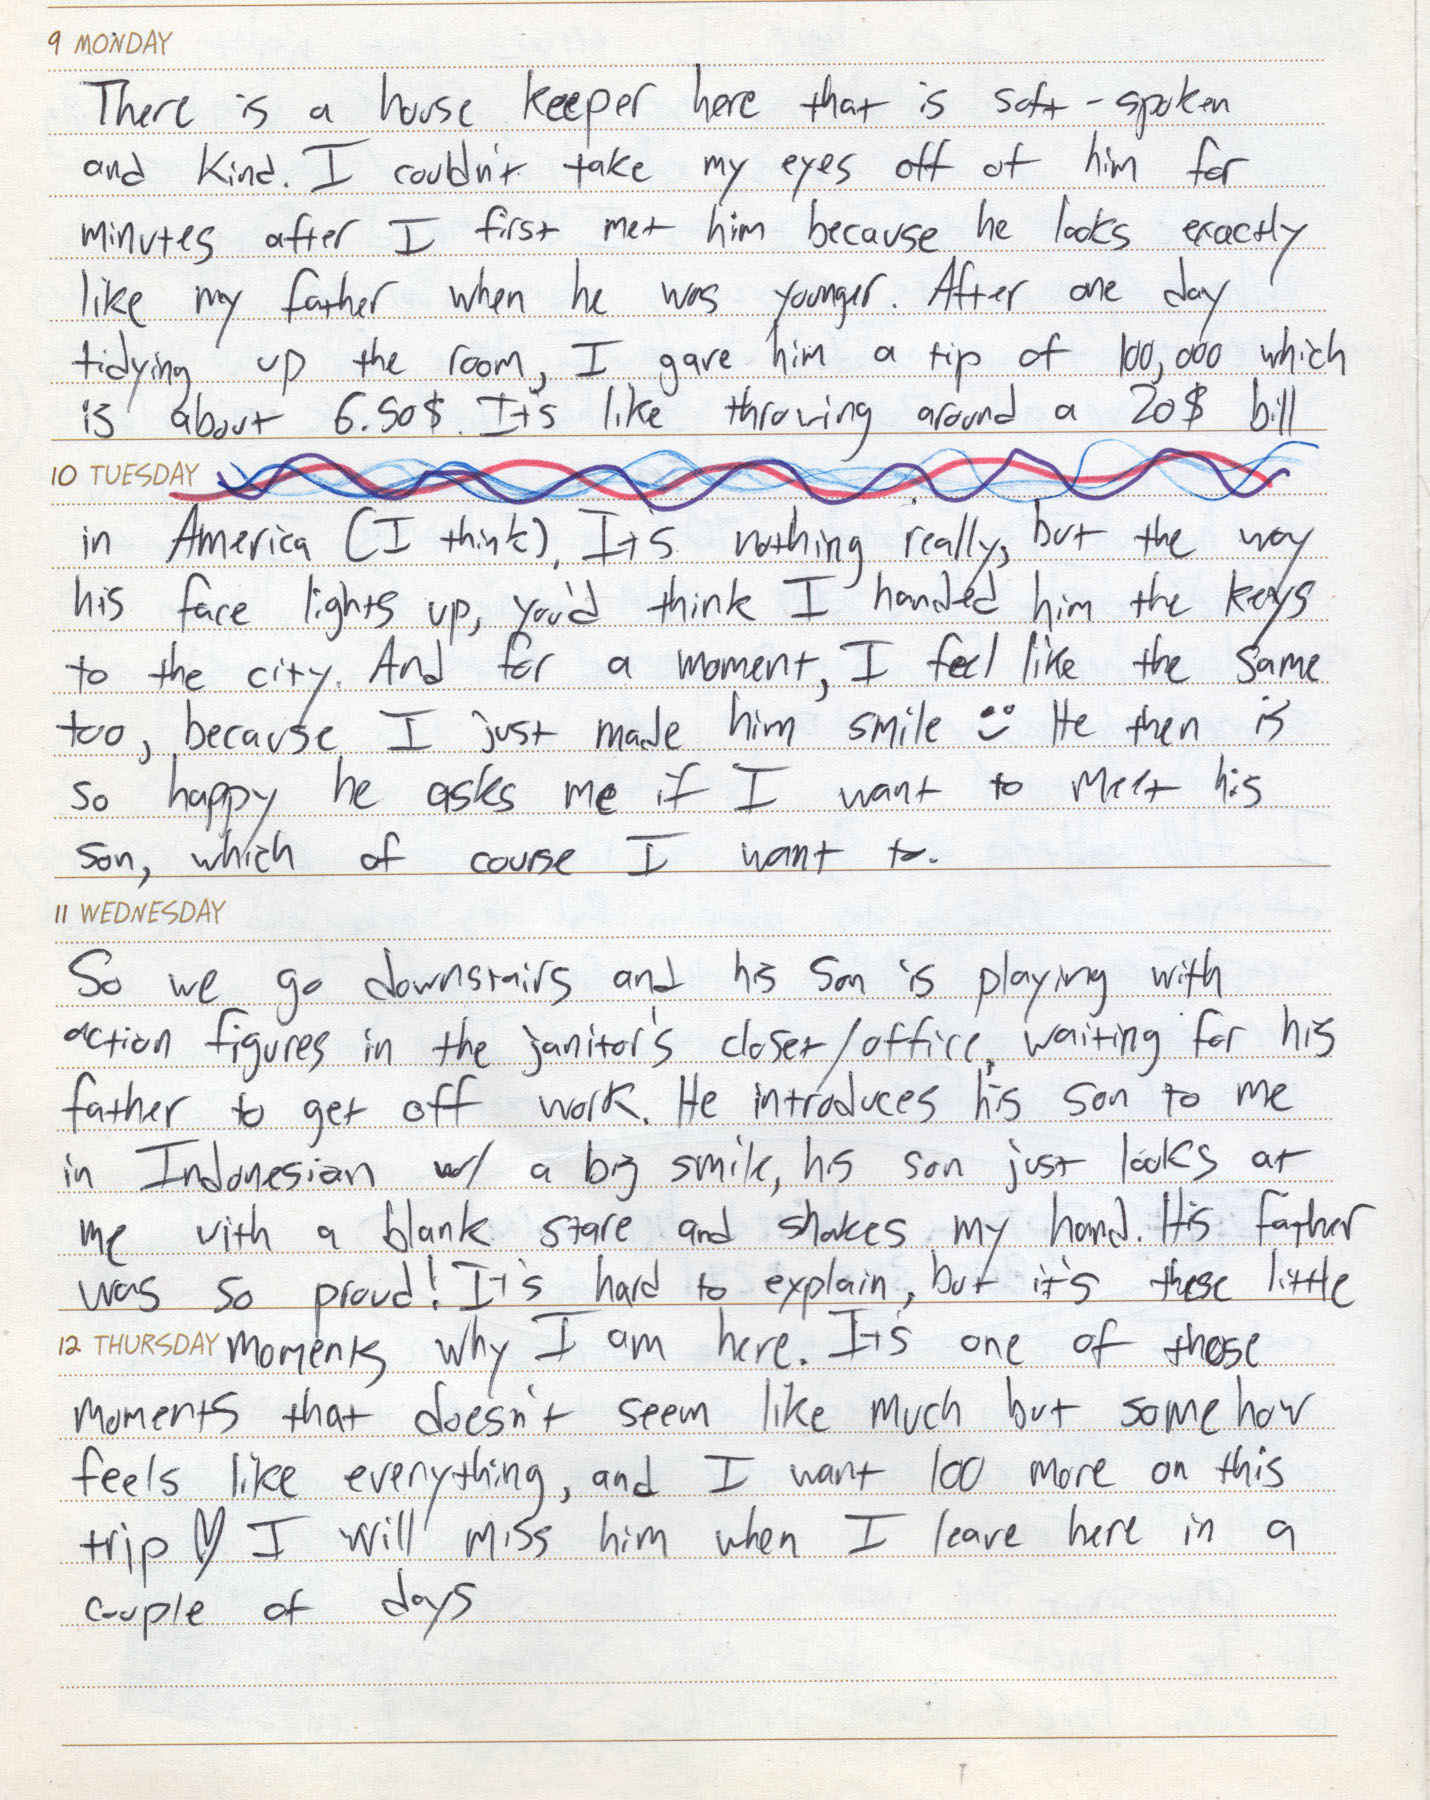 9 MONDAY
There is a house keeper here that is soft-spoken
and kind. I couldn't take my eyes off of him for
minutes after I first met him because he looks exactly
like my father when he was younger. After one day
tidying up the room, I gave him a tip of 100,000 which
is about 6.50$. It's like throwing around a 20$ bill
10 TUESDAY
in America (I think). It's nothing really, but the way
his face lights up, you'd think I handed him the keys
to the city. And for a moment, I feel like the same
too, because I just made him smile :) He then is
so happy he asks me if I want to meet his
son, which of course I want to.
11 WEDNESDAY
So we go downstairs and his son is playing with
action figures in the janitor's closet/office, waiting for his
father to get off work. He introduces his son to me
in Indonesian w/ a big smile, his son just looks at
me with a blank stare and shakes my hand. His father
was so proud! It's hard to explain, but it's these little
12 THURSDAY moments why I am here. It's one of those
moments that doesn't seem like much but somehow
feels like everything, and I want 100 more on this
trip ♡ I will miss him when I leave here in a
couple of days